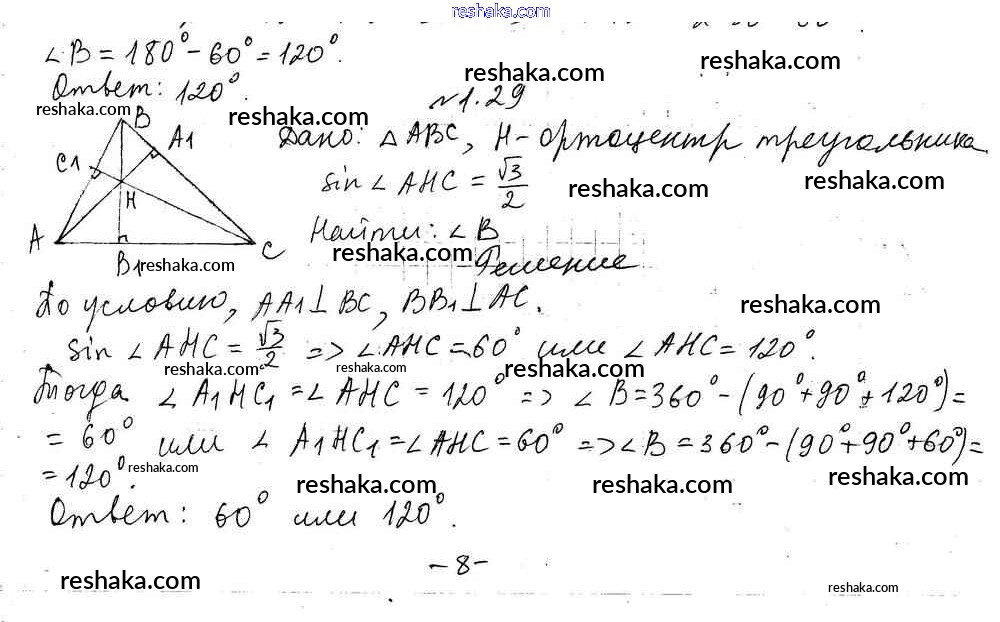 reshaka.com
∠B = 180° - 60° = 120°.
Ответ: 120°.
reshaka.com
reshaka.com
reshaka.com
reshaka.com
№1.29
B
A1
C1
H
A
C
B1
reshaka.com
Дано: △ABC, H - ортоцентр треугольника
sin∠AHC = √3/2
reshaka.com
reshaka.com
Найти: ∠B
reshaka.com
Решение
По условию, AA1⊥BC, BB1⊥AC.
reshaka.com
sin∠AHC = √3/2 => ∠AHC = 60° или ∠AHC = 120°.
reshaka.com
reshaka.com
reshaka.com
Тогда ∠A1HC1 = ∠AHC = 120° => ∠B = 360° - (90° + 90° + 120°) =
= 60° или ∠A1HC1 = ∠AHC = 60° => ∠B = 360° - (90° + 90° + 60°) =
= 120°.
reshaka.com
reshaka.com
reshaka.com
reshaka.com
Ответ: 60° или 120°.
- 8 -
reshaka.com
reshaka.com